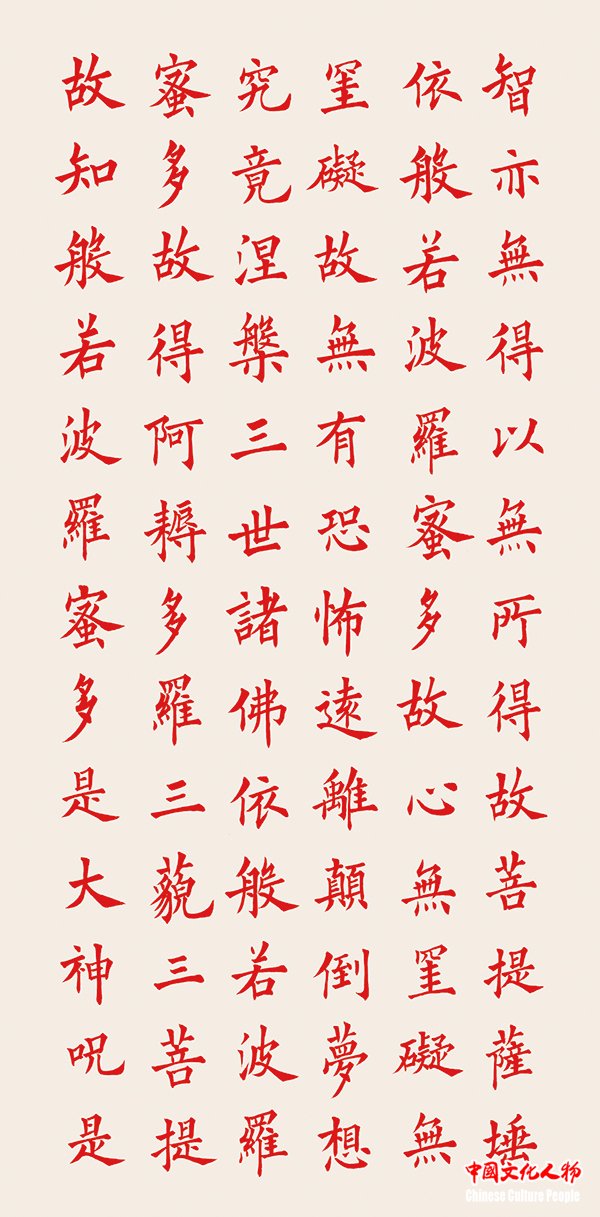 智亦無得以無所得故菩提薩埵
依般若波羅蜜多故心無罣礙無
罣礙故無有恐怖遠離顛倒夢想
究竟涅槃三世諸佛依般若波羅
蜜多故得阿耨多羅三藐三菩提
故知般若波羅蜜多是大神呪是
中國文化人物
Chinese Culture People